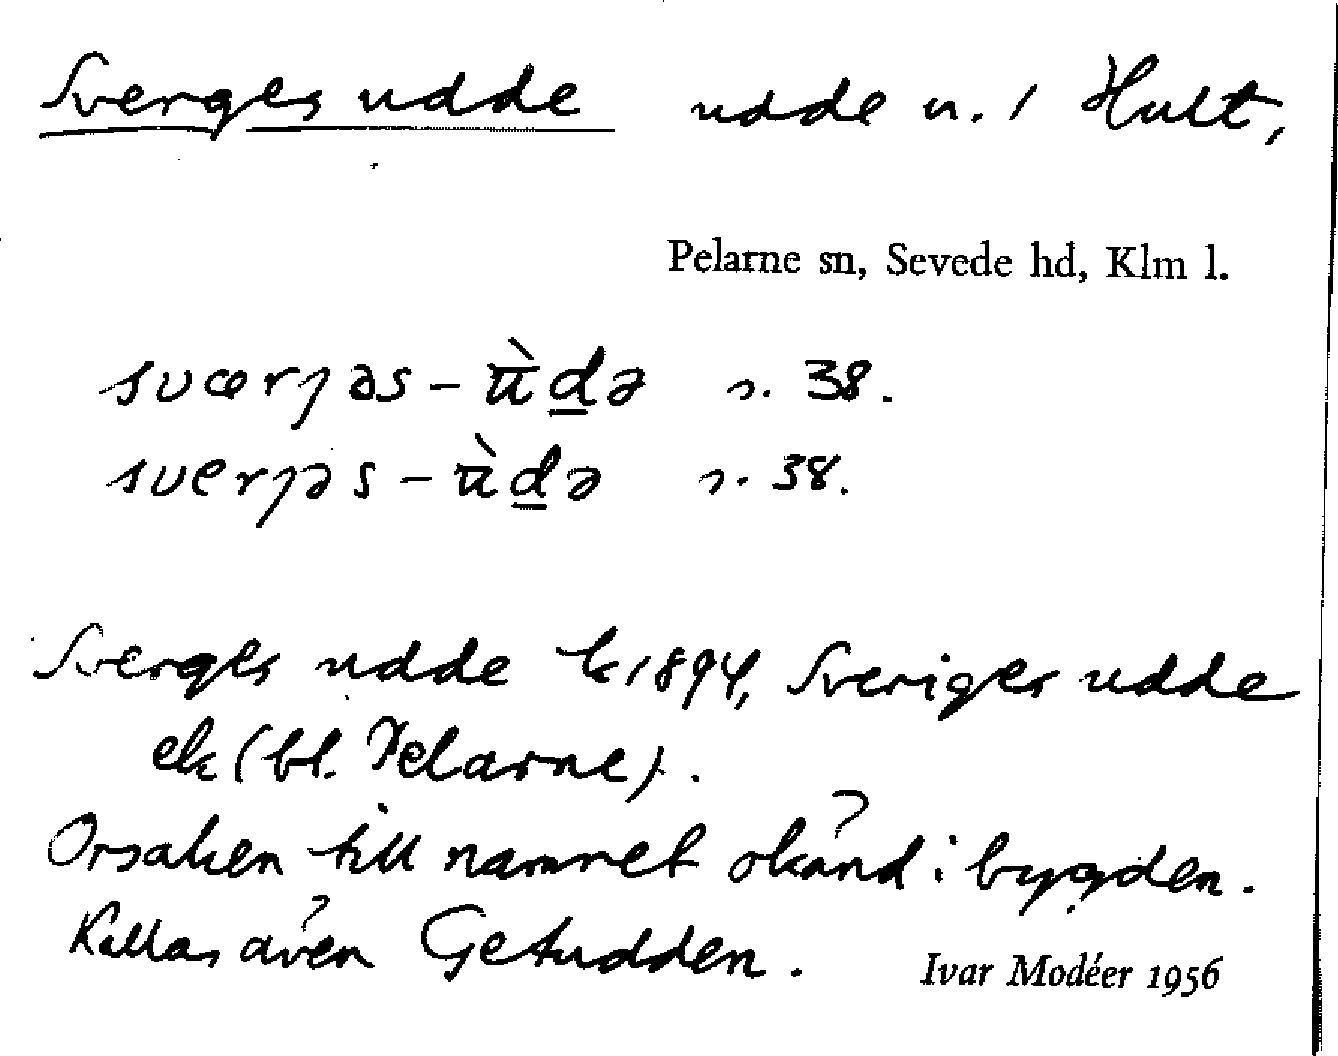 Sverges udde udde u. / Hult,
Pelarne sn, Sevede hd, Klm l.
sværjəs - ùdə s. 38.
sverjəs - ùdə s. 38.
Sverges udde k 1894, Sveriges udde
ek (bl. Pelarne).
Orsaken till namnet okänd i bygden.
Kallas även Getudden.
Ivar Modéer 1956